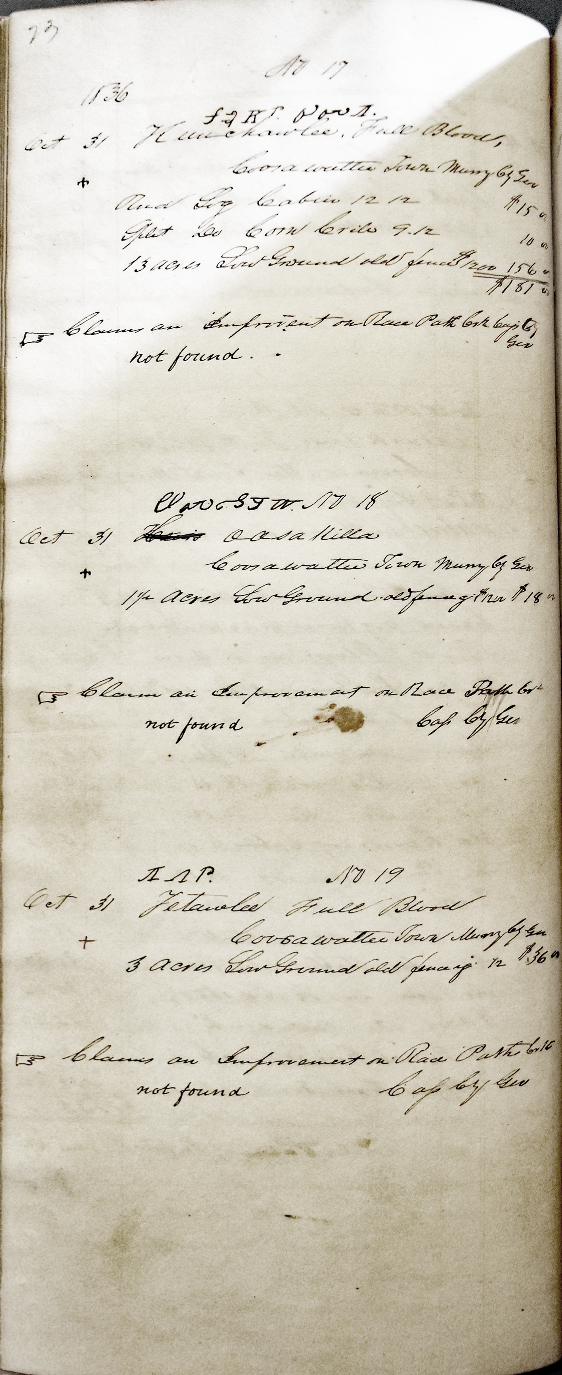 23
No 17
1836
Oct 31 Hunchawlee, Full Blood,
Coosawattee Town Murry Cty Geo
Round Log Cabin 12 12 $15 00
Split Do Corn Crib 9.12 10 00
13 acres Low Ground old fence $12 00 156 00
$181 00
☞ Claims an Improvment on Race Path Crk Cass Cty Geo
not found.
No 18
Oct 31 Heirs Oosakilla
Coosawattee Town Murry Cty Geo
1 1/2 Acres Low Ground old fencing $12 00 $18 00
☞ Claim an Improvement on Race Path Crk
not found Cass Cty Geo
ᎢᏗᎵ. No 19
Oct 31 Tetawlee Full Blood
Coosawattee Town Murry Cty Geo
3 Acres Low Ground old fencing 12 $36 00
☞ Claims an Improvement on Race Path Crk
not found Cass Cty Geo